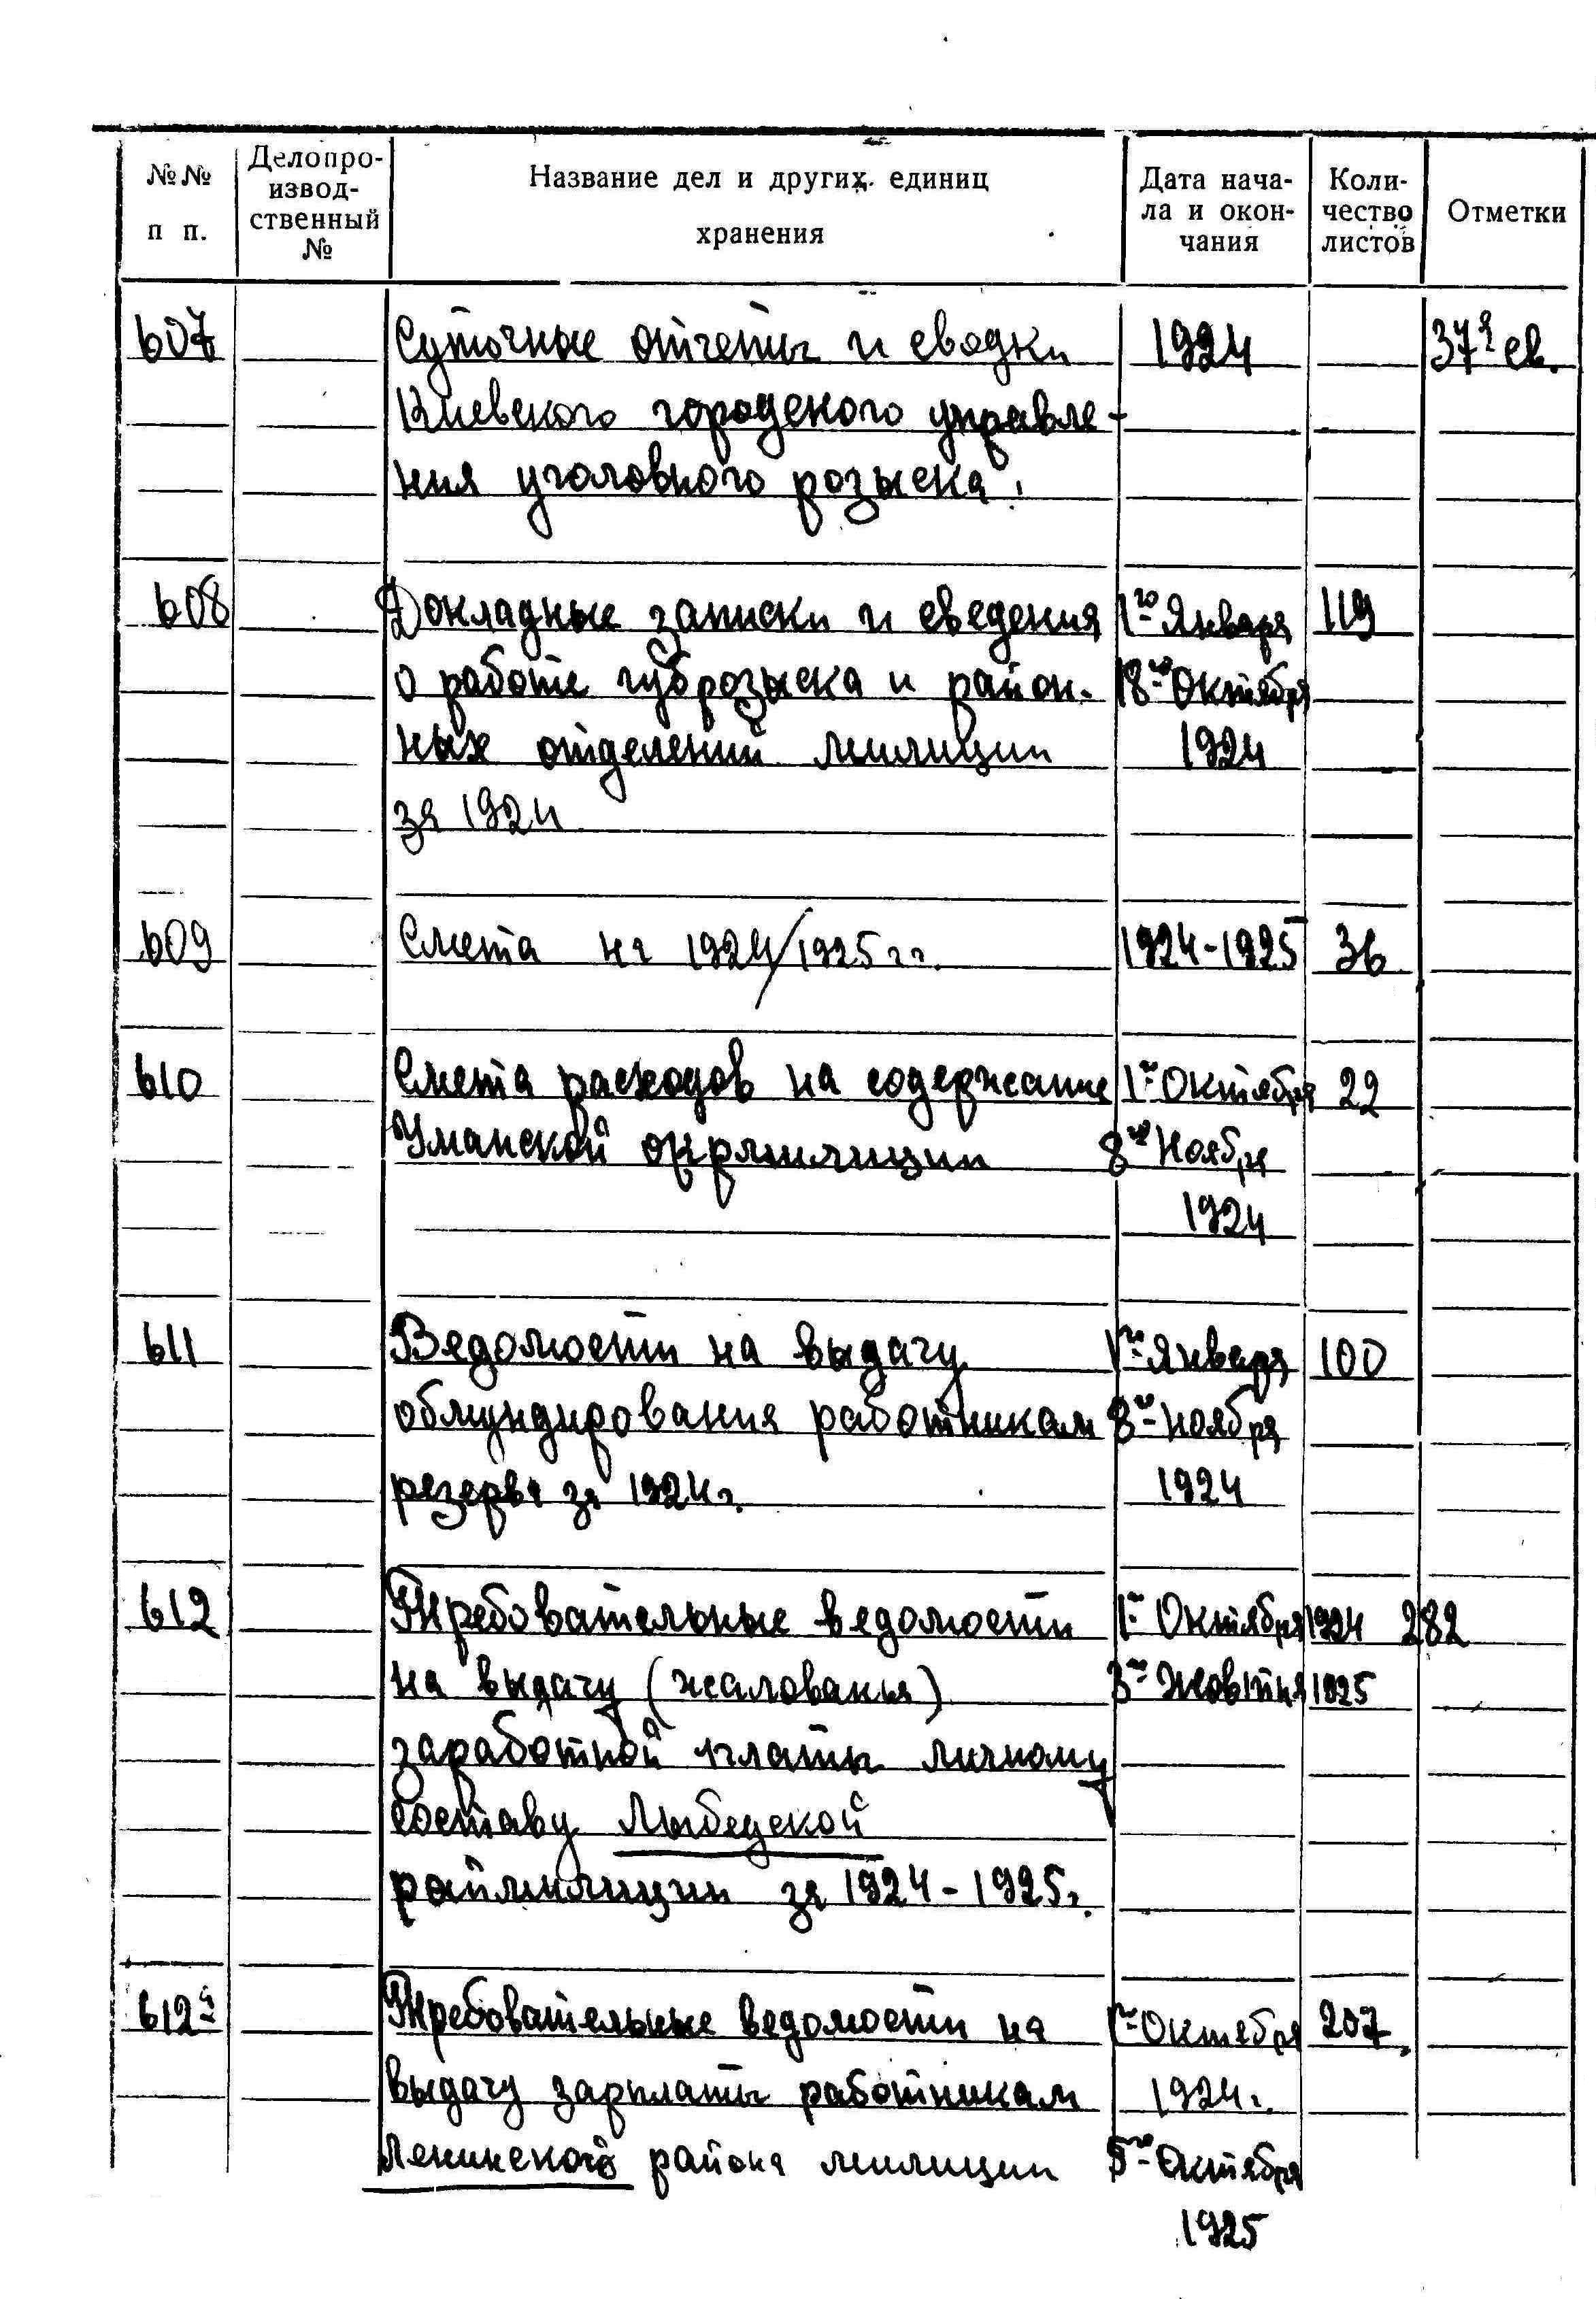 №№ п п.
Делопро-
извод-
ственный
№
Название дел и других единиц
хранения
Дата нача-
ла и окон-
чания
Коли-
чество
листов
Отметки
607 Суточные отчеты и сводки 1924
Киевского городского управле-
ния уголовного розыска.
608 Докладные записки и сведения 1го Января 119
о работе губрозыска и район- 18го Октября
ных отделений милиции 1924
за 1924
609 Смета на 1924/1925 гг. 1924-1925 36
610 Смета расходов на содержание 1го Октября 22
Уманской окрмилиции 8го Ноября
1924
611 Ведомости на выдачу 1го Января 100
обмундирования работникам 8го Ноября
резерва за 1924 г. 1924
612 Требовательные ведомости 1го Октября 1924 282
на выдачу (жалованья) 3го Жовтня 1925
заработной платы личному
составу Лыбедской
раймилиции за 1924-1925 г.
612а Требовательные ведомости на 1го Октября 207
выдачу зарплаты работникам 1924 г.
Ленинского района милиции 5го Октября
1925